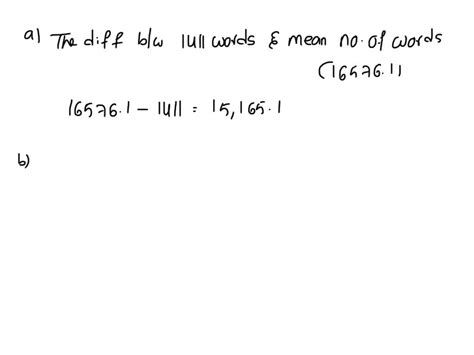 a) The diff b/w 1411 words & mean no. of words
(16576.1)
16576.1 - 1411 = 15,165.1
b)